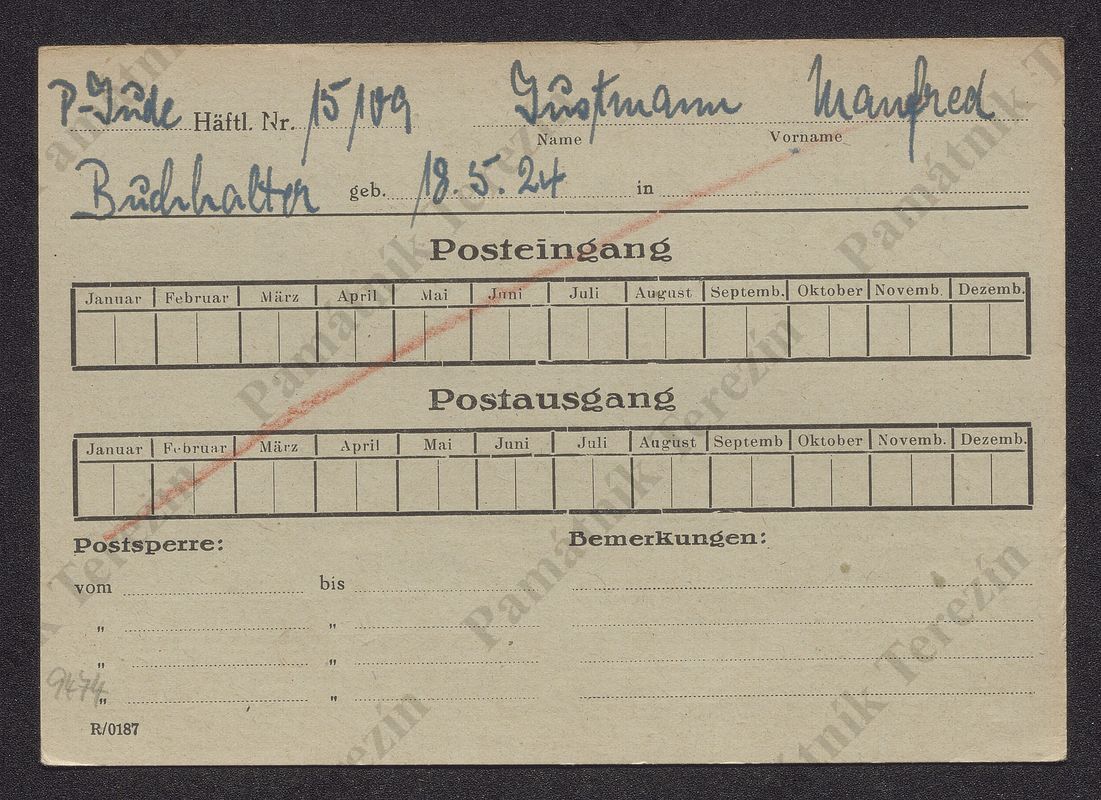 P-Jude Häftl. Nr. 15/109 Justmann Manfred
Name Vorname
Buchhalter geb. 18.5.24 in
Posteingang
Januar Februar März April Mai Juni Juli August Septemb. Oktober Novemb. Dezemb.
Postausgang
Januar Februar März April Mai Juni Juli August Septemb Oktober Novemb. Dezemb.
Postsperre: Bemerkungen:
vom bis
" "
" "
9474 " "
R/0187
Památník Terezín